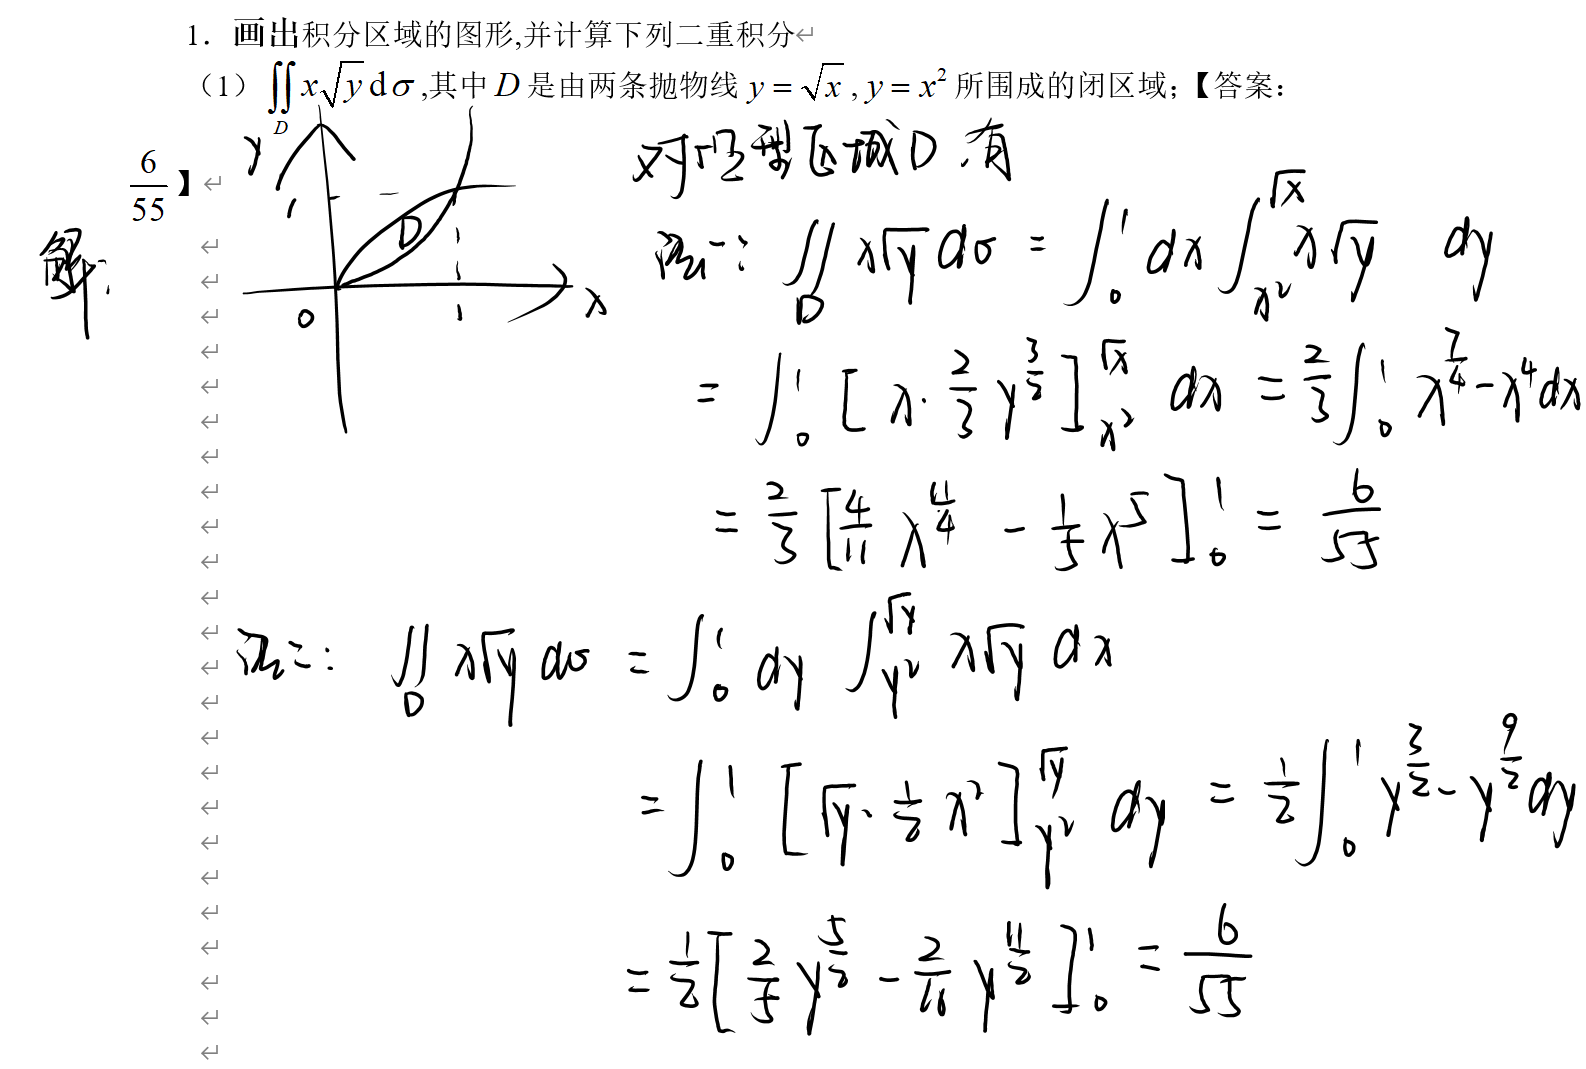 1. 画出积分区域的图形,并计算下列二重积分
（1）∬_D x√y dσ ,其中 D 是由两条抛物线 y = √x , y = x² 所围成的闭区域；【答案：
6/55】
解:
y
1
D
0
1
x
型区域D,有
法一: ∬_D x√y dσ = ∫_0^1 dx ∫_{x²}^{√x} x√y dy
= ∫_0^1 [x·2/3 y^{3/2}]_{x²}^{√x} dx = 2/3 ∫_0^1 x^{7/4} - x^4 dx
= 2/3 [4/11 x^{11/4} - 1/5 x^5]_0^1 = 6/55
法二: ∬_D x√y dσ = ∫_0^1 dy ∫_{y²}^{√y} x√y dx
= ∫_0^1 [√y·1/2 x²]_{y²}^{√y} dy = 1/2 ∫_0^1 y^{3/2} - y^{9/2} dy
= 1/2 [2/5 y^{5/2} - 2/11 y^{11/2}]_0^1 = 6/55